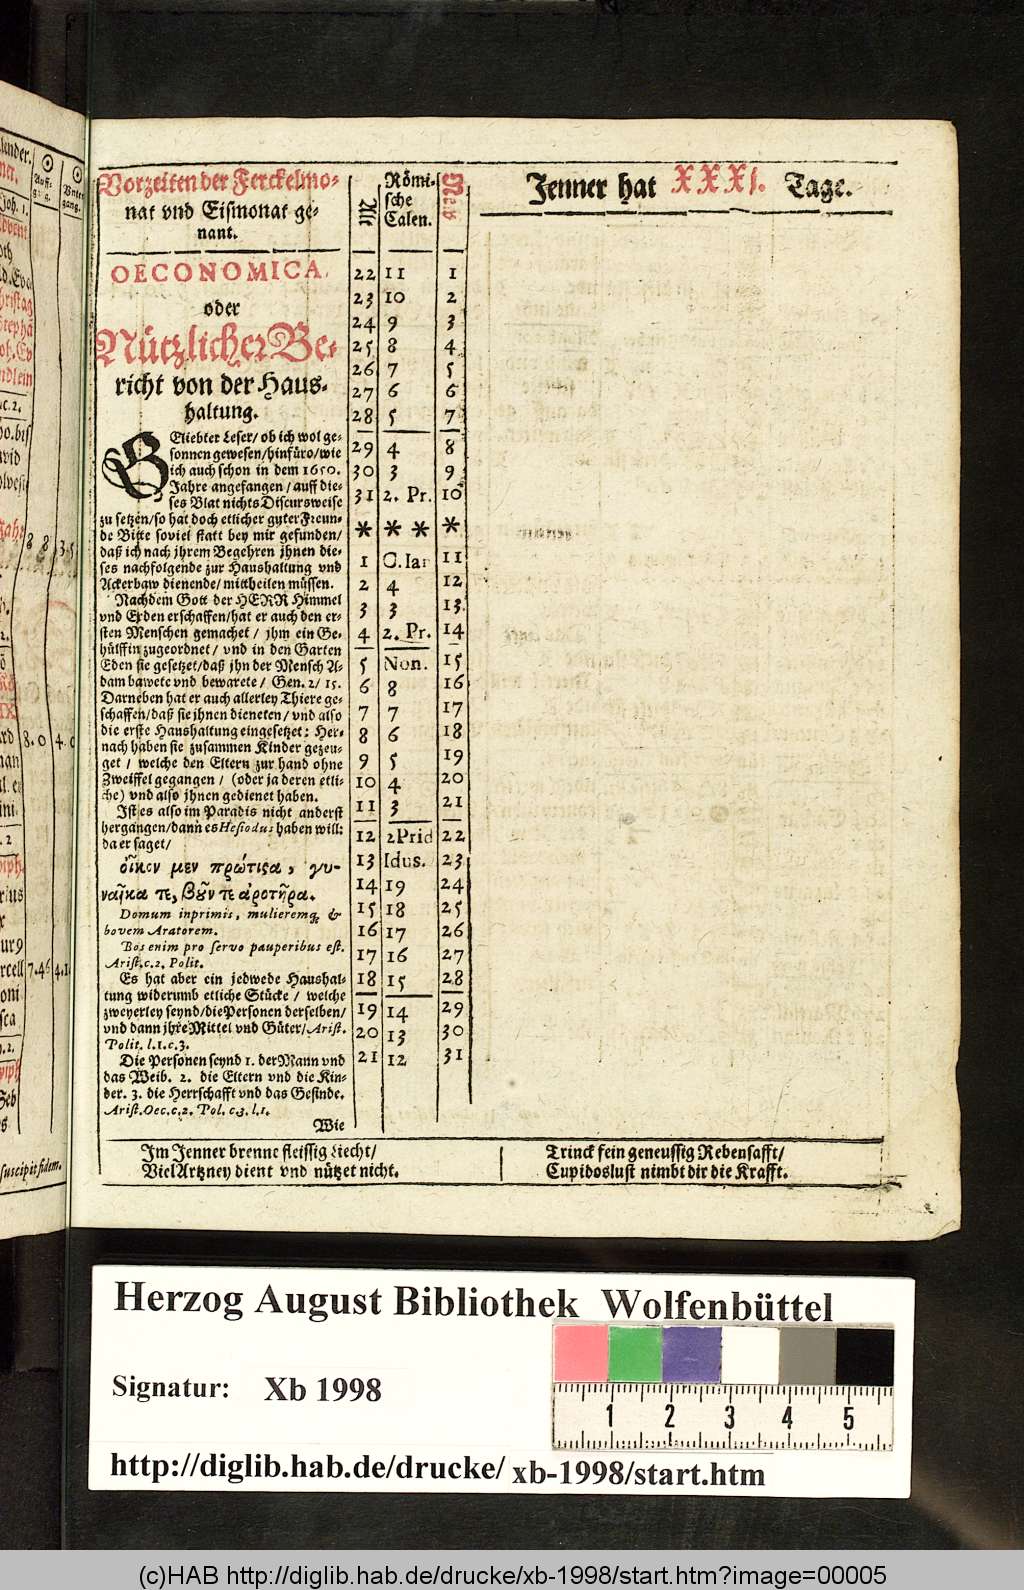 Vorzeiten der Ferckelmo-
nat vnd Eißmonat ge-
nant.
OECONOMICA,
oder
Nützlicher Be-
richt von der Haus-
haltung.
GEliebter Leser/ ob ich wol ge-
sonnen gewesen/hinfüro/wie
ich auch schon in dem 1650.
Jahre angefangen/auff die-
ses Blat nichts Discursweise
zu setzen/so hat doch etlicher guter Freun-
de Bitte soviel statt bey mir gefunden/
daß ich nach jhrem Begehren jhnen die-
ses nachfolgende zur Haushaltung vnd
Ackerbaw dienende/mittheilen müssen.
Nachdem Gott der HERR Himmel
vnd Erden erschaffen/hat er auch den er-
sten Menschen gemachet / jhm ein Ge-
hülffin zugeordnet/ vnd in den Garten
Eden sie gesetzet/daß jhn der Mensch A-
dam bawete vnd bewarete/ Gen. 2/ 15.
Darneben hat er auch allerley Thiere ge-
schaffen/daß sie jhnen dieneten/vnd also
die erste Haushaltung eingesetzet: Her-
nach haben sie zusammen Kinder gezeu-
get / welche den Eltern zur hand ohne
Zweiffel gegangen / (oder ja deren etli-
che) vnd also jhnen gedienet haben.
Ist es also im Paradis nicht anderst
hergangen/dann es Hesiodus haben will:
da er saget/
οἶκον μεν πρώτιϛα, γυ-
ναῖκα τε, βοῦν τε ἀροτῆρα.
Domum inprimis, mulieremq; &
bovem Aratorem.
Bos enim pro servo pauperibus est.
Arist.c.2. Polit.
Es hat aber ein jedwede Haushal-
tung widerumb etliche Stücke / welche
zweyerley seynd/die Personen derselben/
vnd dann jhre Mittel vnd Güter/Arist.
Polit. l.1.c.3.
Die Personen seynd 1. der Mann vnd
das Weib. 2. die Eltern vnd die Kin-
der. 3. die Herrschafft vnd das Gesinde.
Arist.Oec.c.2. Pol. c.3. l.1.
Wie
Alt
Römi-
sche
Calen.
New
22 11 1
23 10 2
24 9 3
25 8 4
26 7 5
27 6 6
28 5 7
29 4 8
30 3 9
31 2. Pr. 10
* * * *
1 C.Ian 11
2 4 12
3 3 13
4 2. Pr. 14
5 Non. 15
6 8 16
7 7 17
8 6 18
9 5 19
10 4 20
11 3 21
12 2Prid 22
13 Idus. 23
14 19 24
15 18 25
16 17 26
17 16 27
18 15 28
19 14 29
20 13 30
21 12 31
Jenner hat XXXI. Tage.
Im Jenner brenne fleissig Liecht/
Viel Artzney dient vnd nützet nicht.
Trinck fein geneussig Rebensafft/
Cupidoslust nimbt dir die Krafft.
Herzog August Bibliothek Wolfenbüttel
Signatur: Xb 1998
1 2 3 4 5
http://diglib.hab.de/drucke/ xb-1998/start.htm
(c)HAB http://diglib.hab.de/drucke/xb-1998/start.htm?image=00005